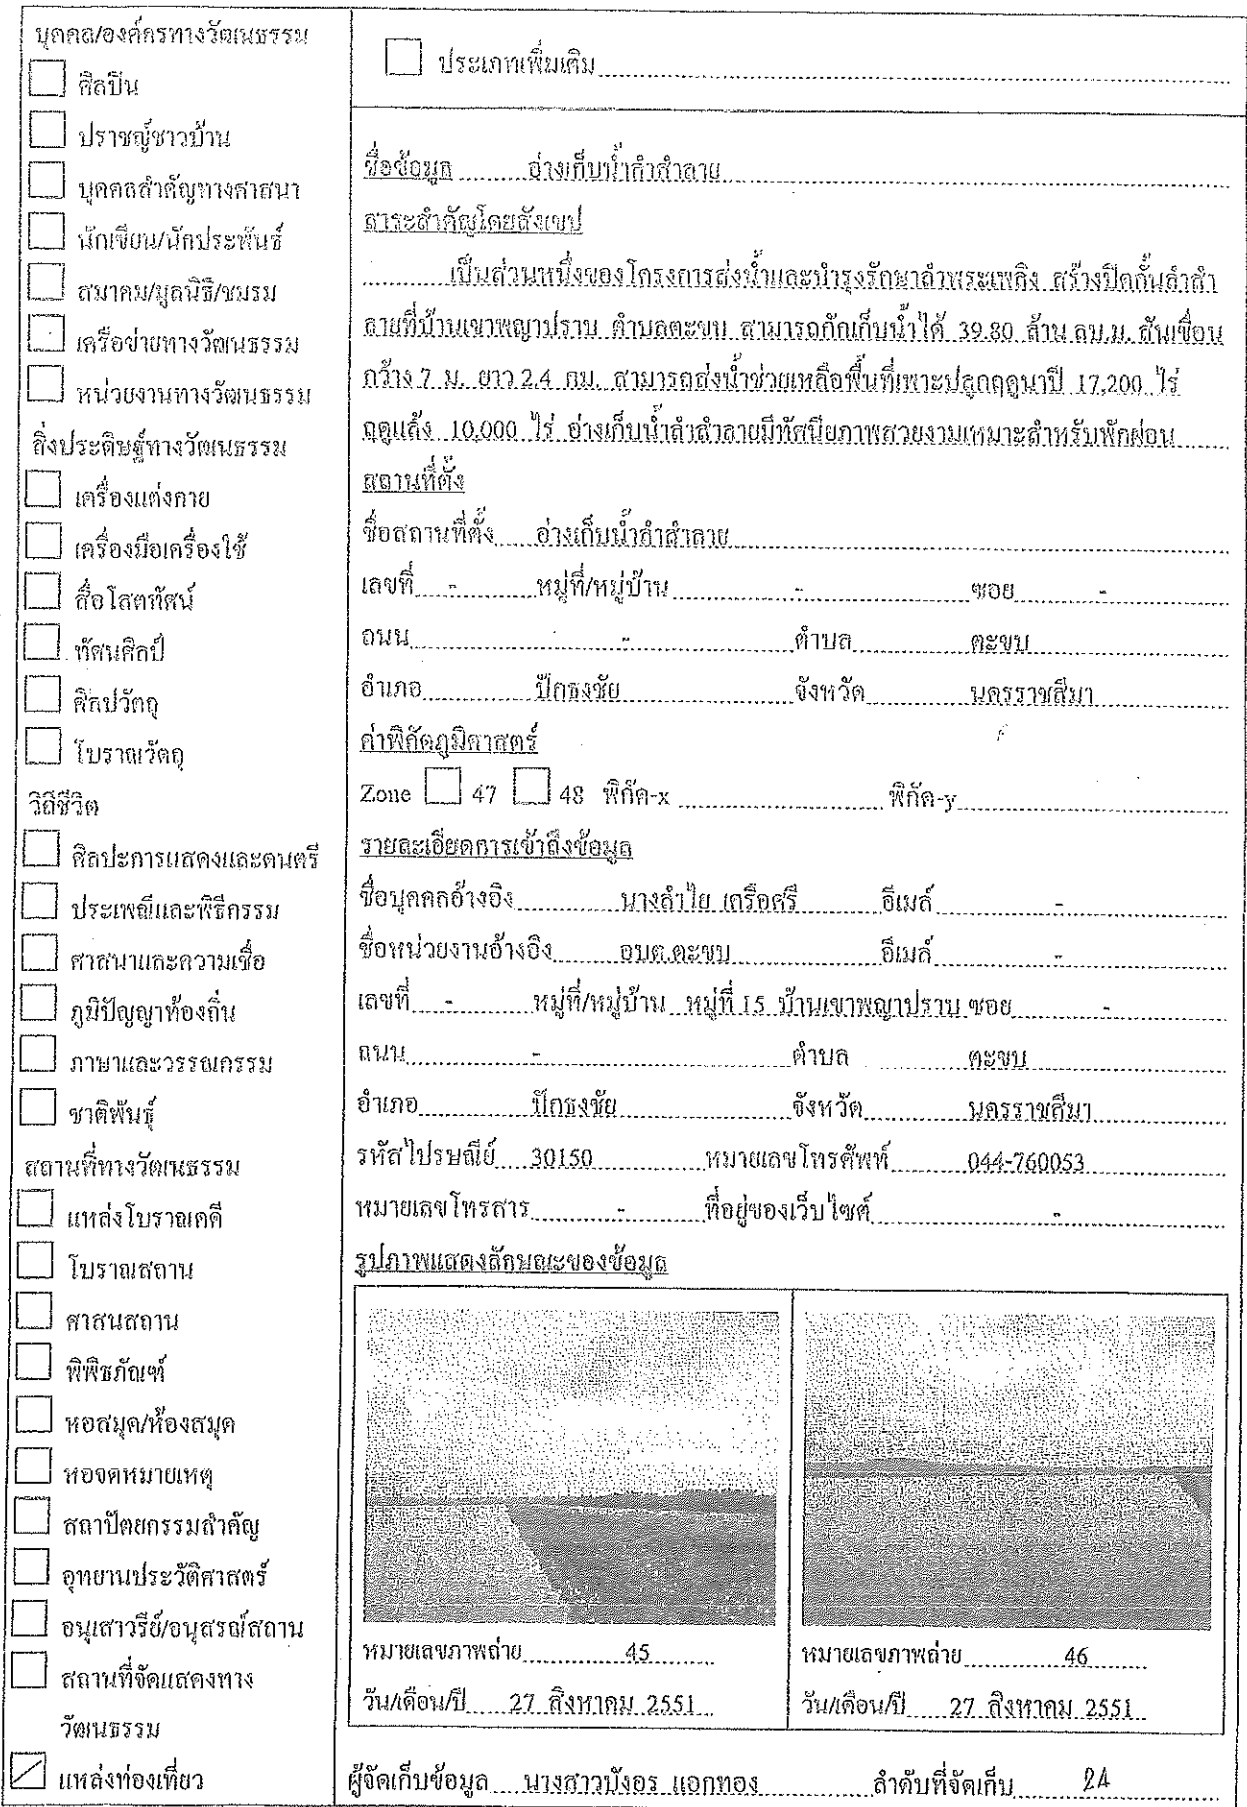 บุคคล/องค์กรทางวัฒนธรรม
ศิลปิน
ปราชญ์ชาวบ้าน
บุคคลสำคัญทางศาสนา
นักเขียน/นักประพันธ์
สมาคม/มูลนิธิ/ชมรม
เครือข่ายทางวัฒนธรรม
หน่วยงานทางวัฒนธรรม
สิ่งประดิษฐ์ทางวัฒนธรรม
เครื่องแต่งกาย
เครื่องมือเครื่องใช้
สื่อโสตทัศน์
ทัศนศิลป์
ศิลปวัตถุ
โบราณวัตถุ
วิถีชีวิต
ศิลปะการแสดงและดนตรี
ประเพณีและพิธีกรรม
ศาสนาและความเชื่อ
ภูมิปัญญาท้องถิ่น
ภาษาและวรรณกรรม
ชาติพันธุ์
สถานที่ทางวัฒนธรรม
แหล่งโบราณคดี
โบราณสถาน
ศาสนสถาน
พิพิธภัณฑ์
หอสมุด/ห้องสมุด
หอจดหมายเหตุ
สถาปัตยกรรมสำคัญ
อุทยานประวัติศาสตร์
อนุเสาวรีย์/อนุสรณ์สถาน
สถานที่จัดแสดงทาง
วัฒนธรรม
แหล่งท่องเที่ยว
ประเภทเพิ่มเติม
ชื่อข้อมูล อ่างเก็บน้ำลำสำลาย
สาระสำคัญโดยสังเขป
เป็นส่วนหนึ่งของโครงการส่งน้ำและบำรุงรักษาลำพระเพลิง สร้างปิดกั้นลำสำ
ลายที่บ้านเขาพญาปราบ ตำบลตะขบ สามารถกักเก็บน้ำได้ 39.80 ล้าน ลบ.ม. สันเขื่อน
กว้าง 7 ม. ยาว 2.4 กม. สามารถส่งน้ำช่วยเหลือพื้นที่เพาะปลูกฤดูนาปี 17,200 ไร่
ฤดูแล้ง 10,000 ไร่ อ่างเก็บน้ำลำสำลายมีทัศนียภาพสวยงามเหมาะสำหรับพักผ่อน
สถานที่ตั้ง
ชื่อสถานที่ตั้ง อ่างเก็บน้ำลำสำลาย
เลขที่ - หมู่ที่/หมู่บ้าน - ซอย -
ถนน - ตำบล ตะขบ
อำเภอ ปักธงชัย จังหวัด นครราชสีมา
ค่าพิกัดภูมิศาสตร์
Zone 47 48 พิกัด-x พิกัด-y
รายละเอียดการเข้าถึงข้อมูล
ชื่อบุคคลอ้างอิง นางลำไย เครือศรี อีเมล์ -
ชื่อหน่วยงานอ้างอิง อบต.ตะขบ อีเมล์ -
เลขที่ - หมู่ที่/หมู่บ้าน หมู่ที่ 15 บ้านเขาพญาปราบ ซอย -
ถนน - ตำบล ตะขบ
อำเภอ ปักธงชัย จังหวัด นครราชสีมา
รหัสไปรษณีย์ 30150 หมายเลขโทรศัพท์ 044-760053
หมายเลขโทรสาร - ที่อยู่ของเว็บไซต์ -
รูปภาพแสดงลักษณะของข้อมูล
หมายเลขภาพถ่าย 45
วัน/เดือน/ปี 27 สิงหาคม 2551
หมายเลขภาพถ่าย 46
วัน/เดือน/ปี 27 สิงหาคม 2551
ผู้จัดเก็บข้อมูล นางสาวบังอร แอกทอง ลำดับที่จัดเก็บ 24